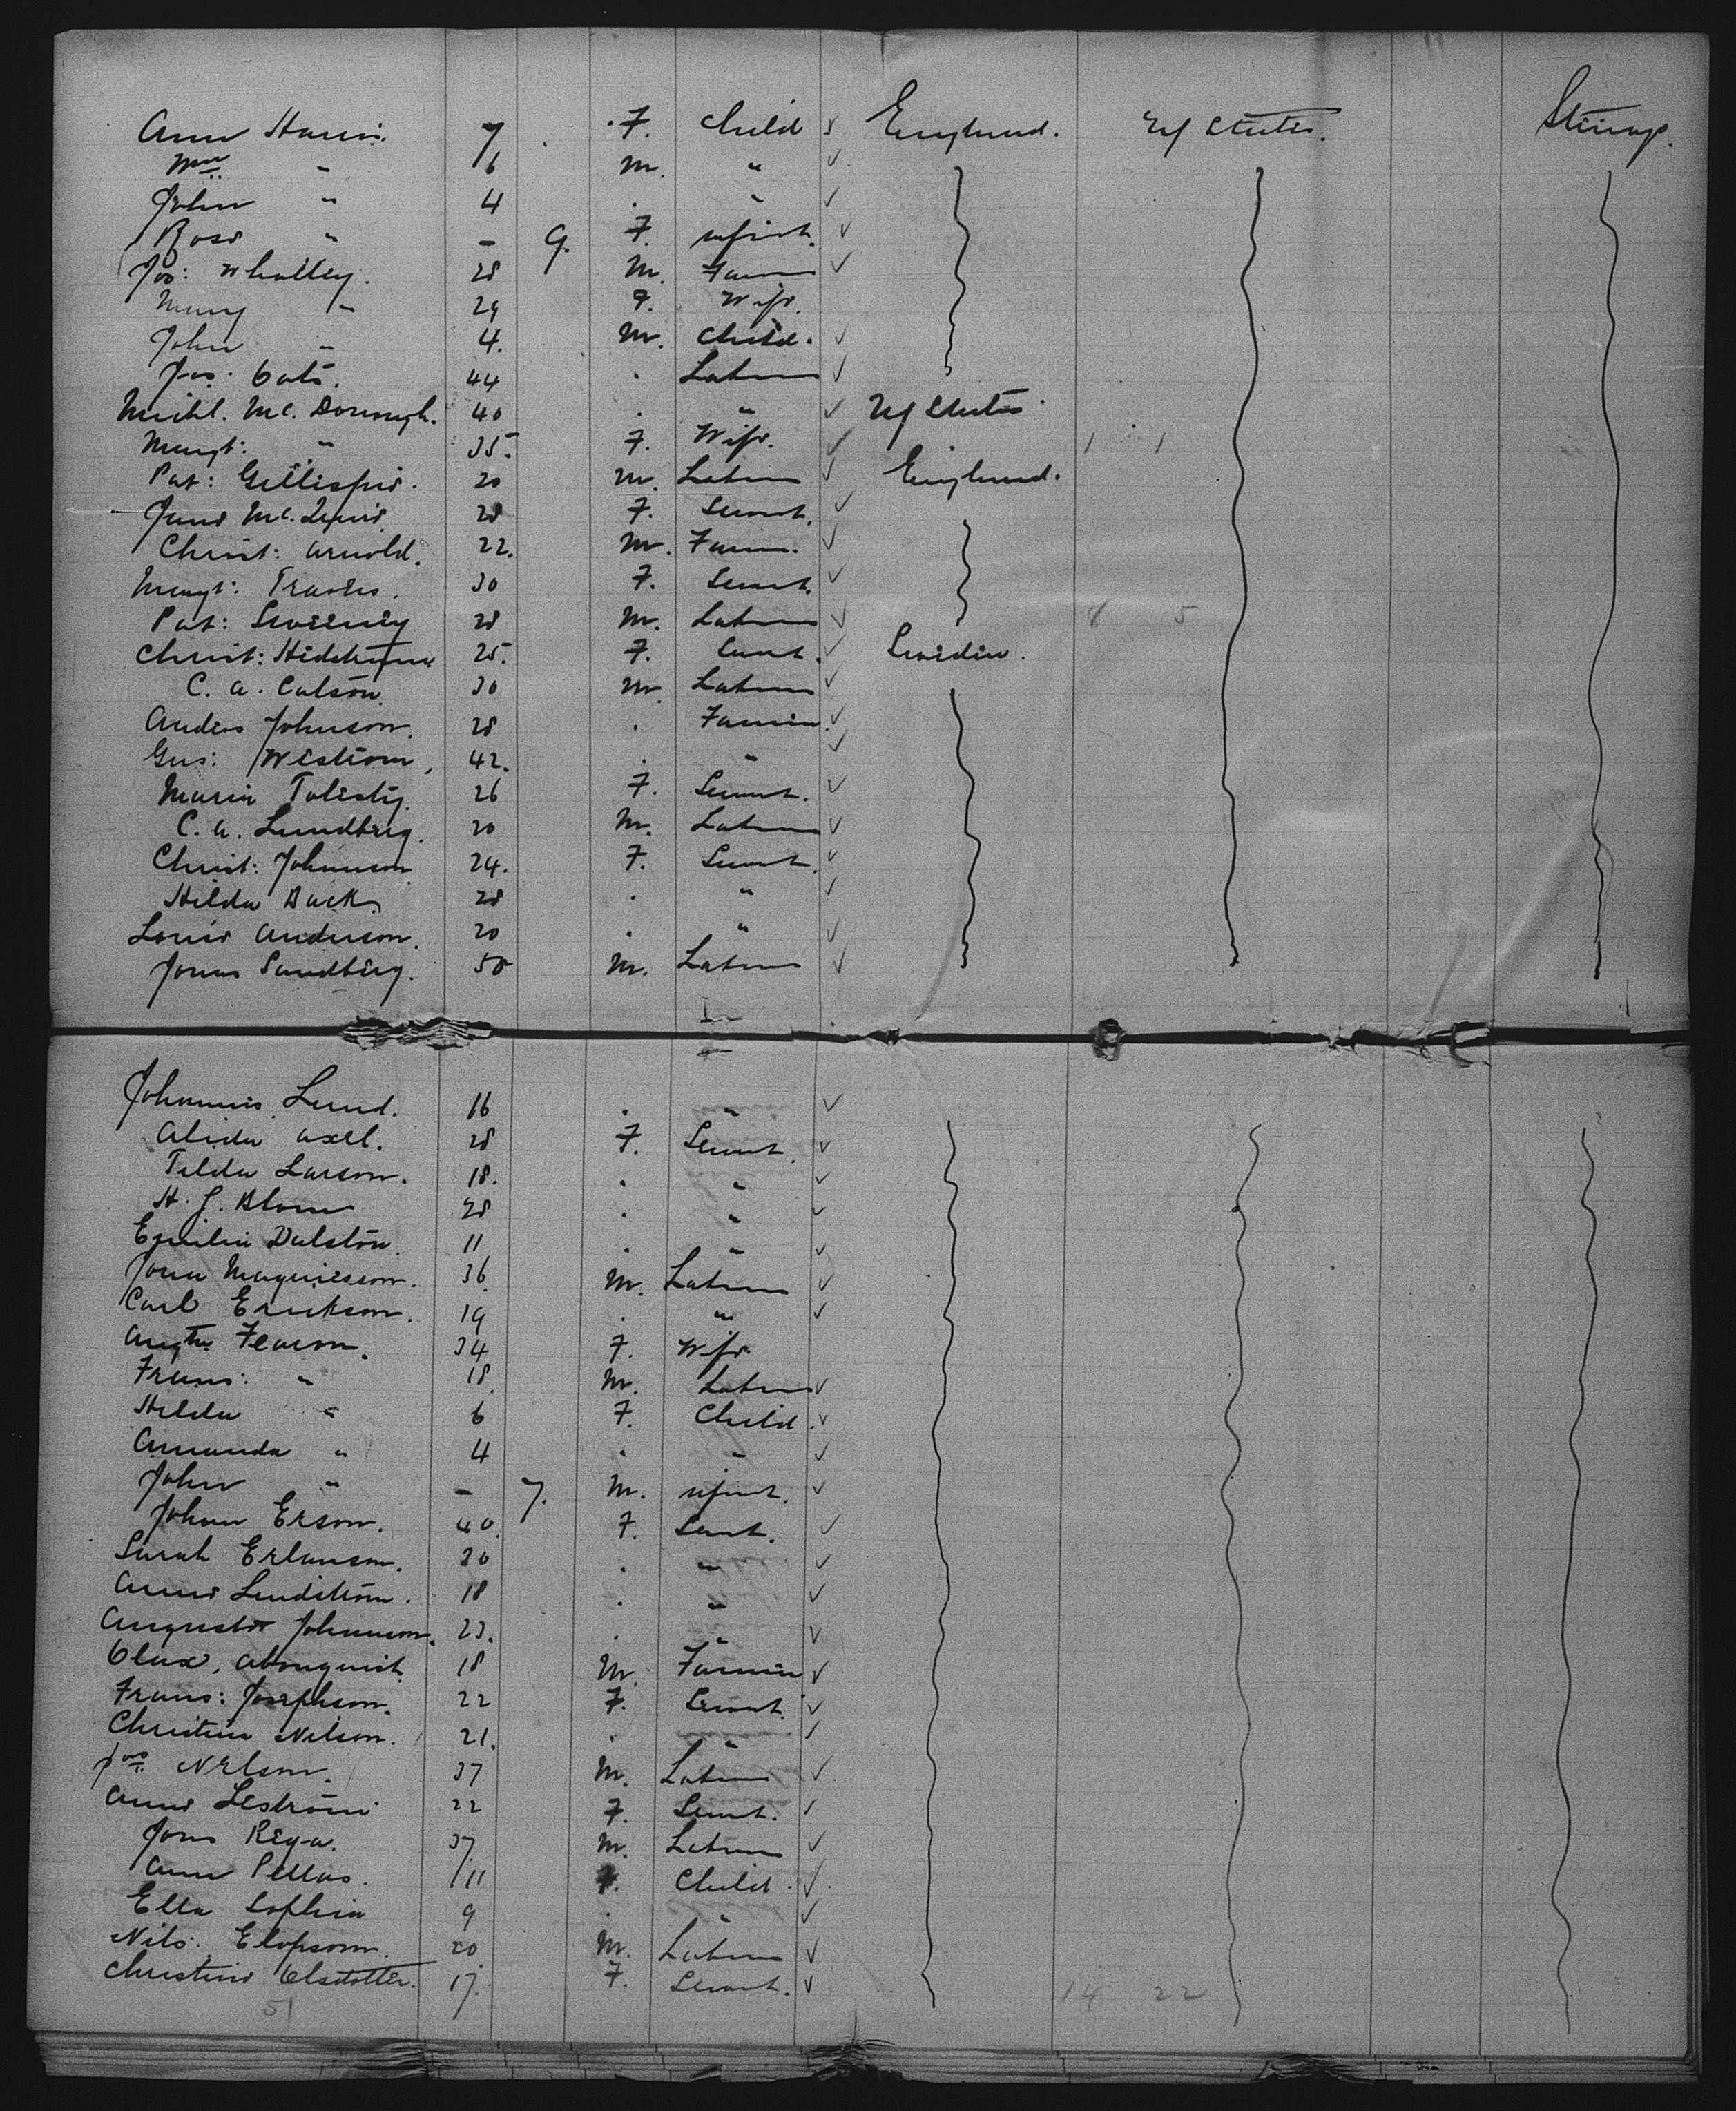 Ann Harris. 7 F. Child England. U States. Steerage.
Wm " 6 M. "
John " 4 . "
Rose " – 9. F. infant.
Jos: Whalley. 28 M. Farmer
Mary " 29 F. Wife.
John " 4. M. Child.
Jas. Oats. 44 . Labourer
Michl. Mc. Donough. 40 . " U States.
Margt: " 35. F. Wife. 1 1
Pat: Gillispie. 20 M. Labourer England.
Jane Mc. 28 F. Servant.
Christ: Arnold. 22. M. Farmer.
Margt: 30 F. Servant.
Pat: Sweeney 28 M. Labourer 4 5
Christ: 25. F. Servt. Sweden.
C. A. Calson. 30 M. Labourer
Anders Johnson. 28 . Farmer
Gus: Westrom, 42. . "
Maria 26 F. Servant.
C. A. Lundberg. 20 M. Labourer
Christ: Johnnson 24. F. Servant.
Hilda Back. 28 . "
Louise Anderson. 20 . "
Jonas Sandberg. 50 M. Labourer
Johannis Lund. 16 . "
Alida Axel. 28 F. Servant.
Tilda Larson. 18. . "
H. J. Blom 28 . "
Emilia Dalston. 11 . "
Jona Magnusson. 36 M. Labourer
Carl Erickson. 19 . "
Augta Fearson. 34 F. Wife.
Frans: " 18. M. Labourer
Hilda " 6 F. Child.
Amanda " 4 . "
John " – 7. M. infant.
Johan Erson. 40. F. Servt.
Sarah Erlanson. 30 . "
Anne Lindstrom. 18 . "
Auguster Johnnson. 23. . "
Olax, 18 M. Farmer
Frans: Josephson. 22 F. Servant.
Christina Nilson. 21. . "
Jos. Nelson. 37 M. Labourer
Anne Lestrom 22 F. Servt.
Jons Reya. 37. M. Labourer
Ann Pellas. 11 F. Child.
Ella Sophia 9 . "
Nils. Elopsom. 20 M. Labourer
Christine Olsdotter. 17. F. Servant.
51 14 22